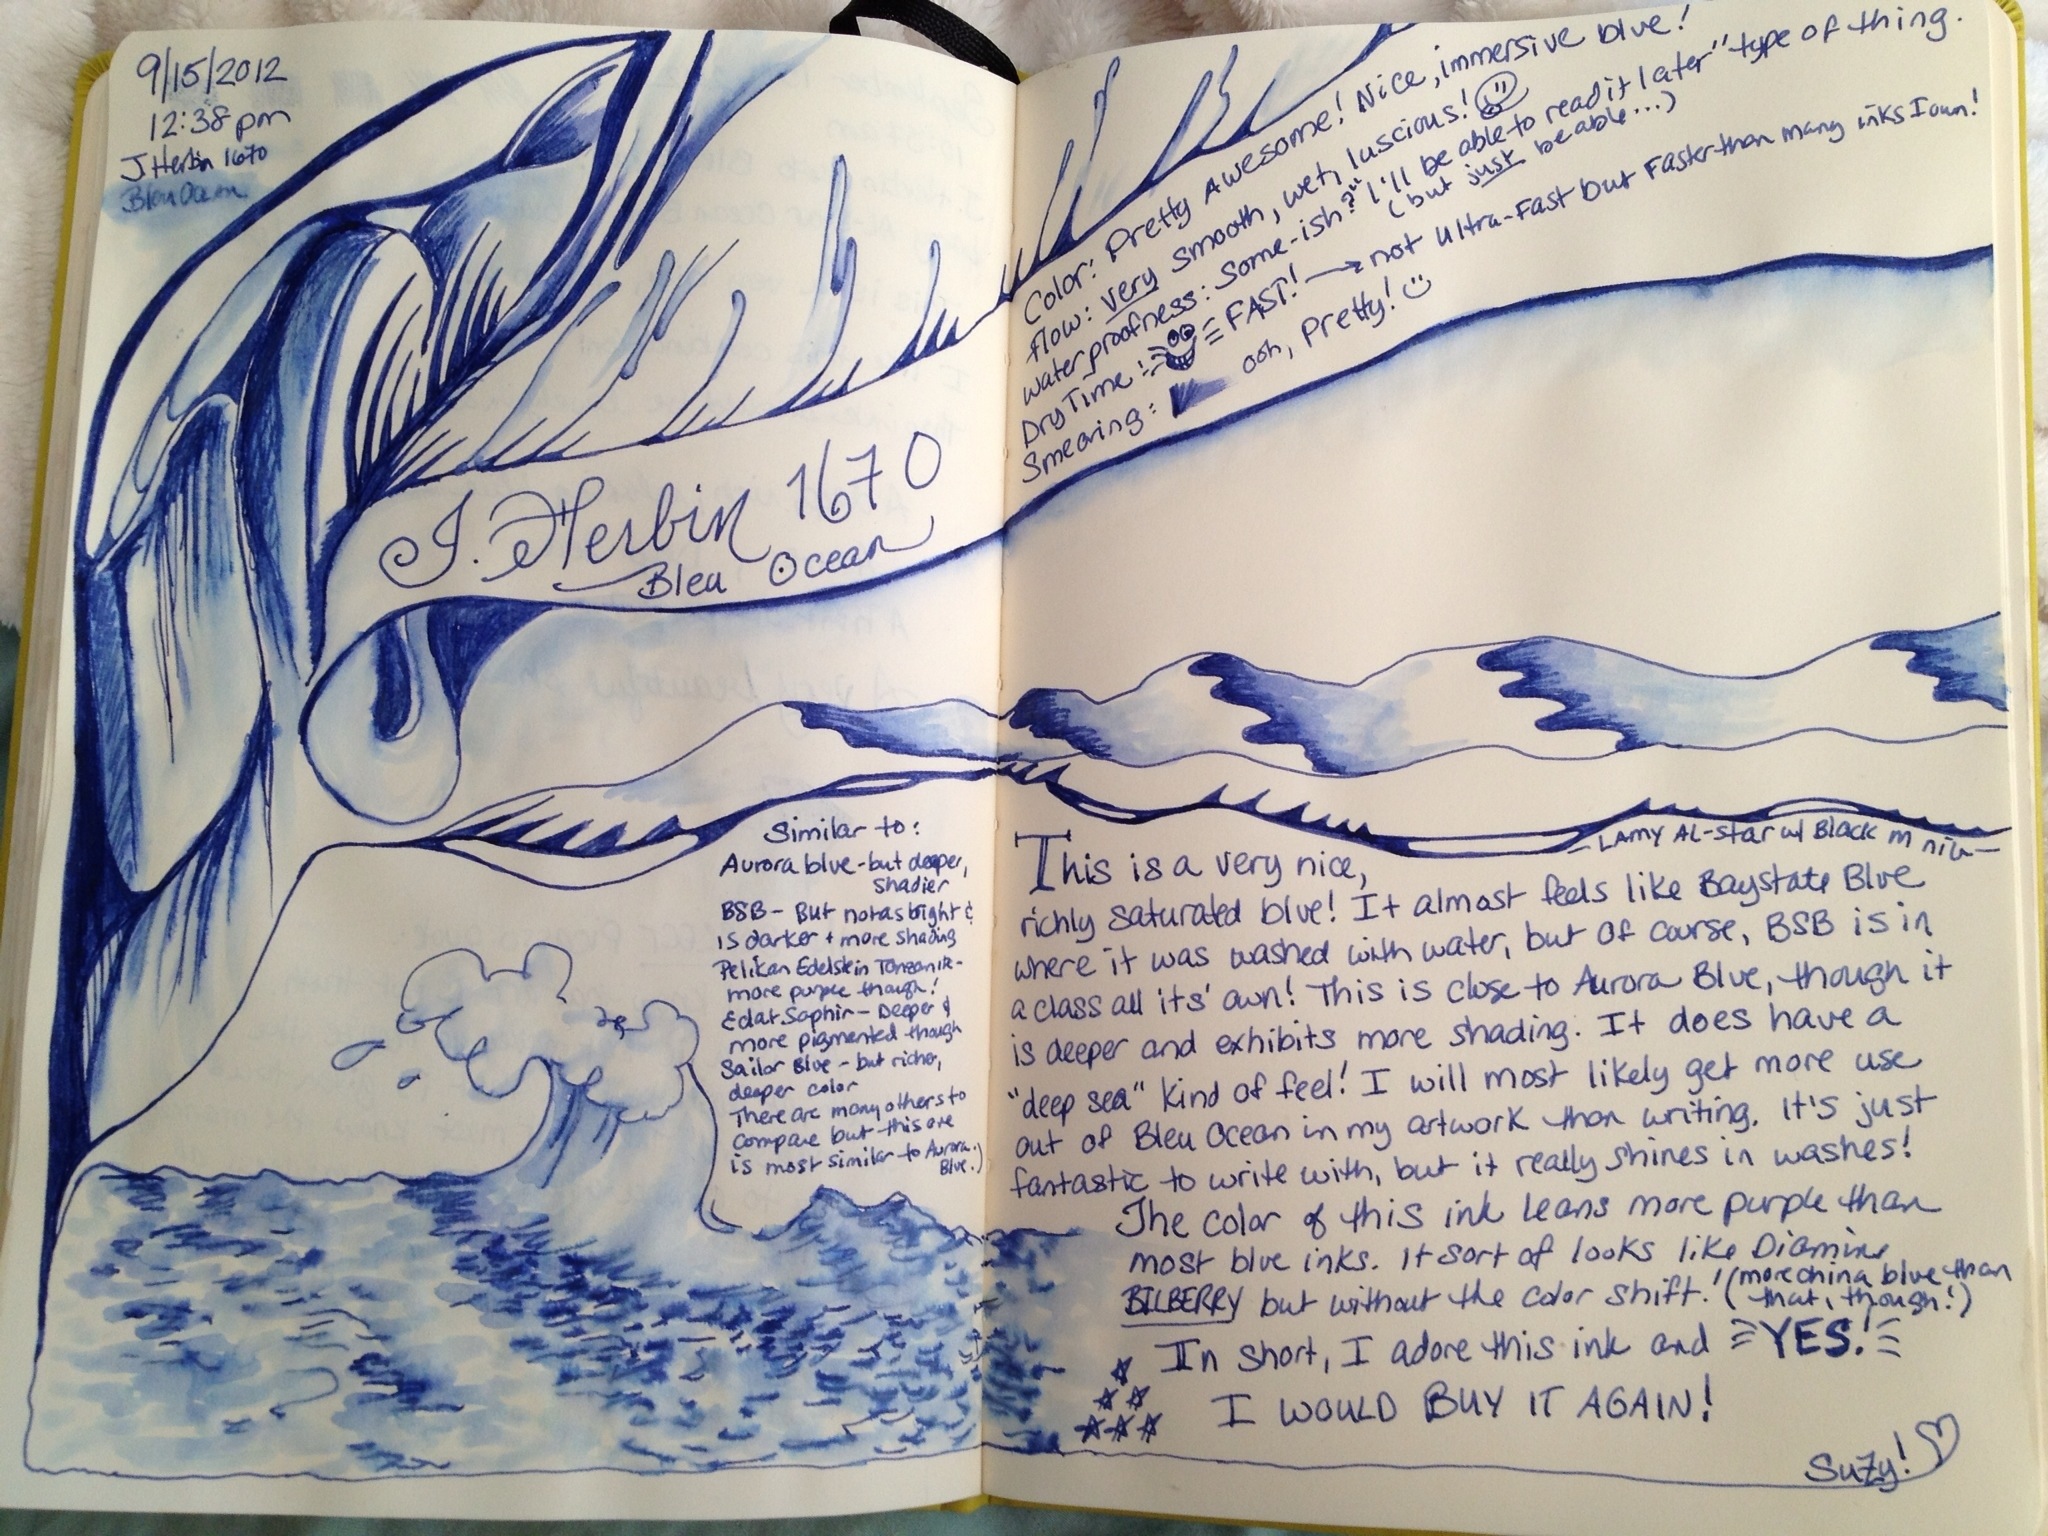 9/15/2012
12:38pm
J Herbin 1670
Bleu Ocean
J. Herbin 1670
Bleu Ocean
Similar to:
Aurora blue - but deeper,
shadier
BSB - But not as bright &
is darker + more shading
Pelikan Edelstein Tanzanite -
more purple though!
Eclat Saphir - Deeper &
more pigmented though
Sailor Blue - but richer,
deeper color
There are many others to
compare but this one
is most similar to Aurora
Blue.)
Color: Pretty Awesome! Nice, immersive blue!
Flow: Very smooth, wet, luscious!
waterproofness: Some-ish? "I'll be able to read it later" type of thing.
(but just be able...)
Dry Time: FAST! → not Ultra-Fast but Faster than many inks I own!
Smearing: ooh, Pretty!
- LAMY AL-Star w/ Black M nib -
This is a very nice,
richly saturated blue! It almost feels like Baystate Blue
where it was washed with water, but of course, BSB is in
a class all its' own! This is close to Aurora Blue, though it
is deeper and exhibits more shading. It does have a
"deep sea" kind of feel! I will most likely get more use
out of Bleu Ocean in my artwork than writing. It's just
fantastic to write with, but it really shines in washes!
The color of this ink leans more purple than
most blue inks. It sort of looks like Diamine
BILBERRY but without the color shift! (more china blue than
that, though!)
In short, I adore this ink and YES!
I WOULD BUY IT AGAIN!
Suzy!